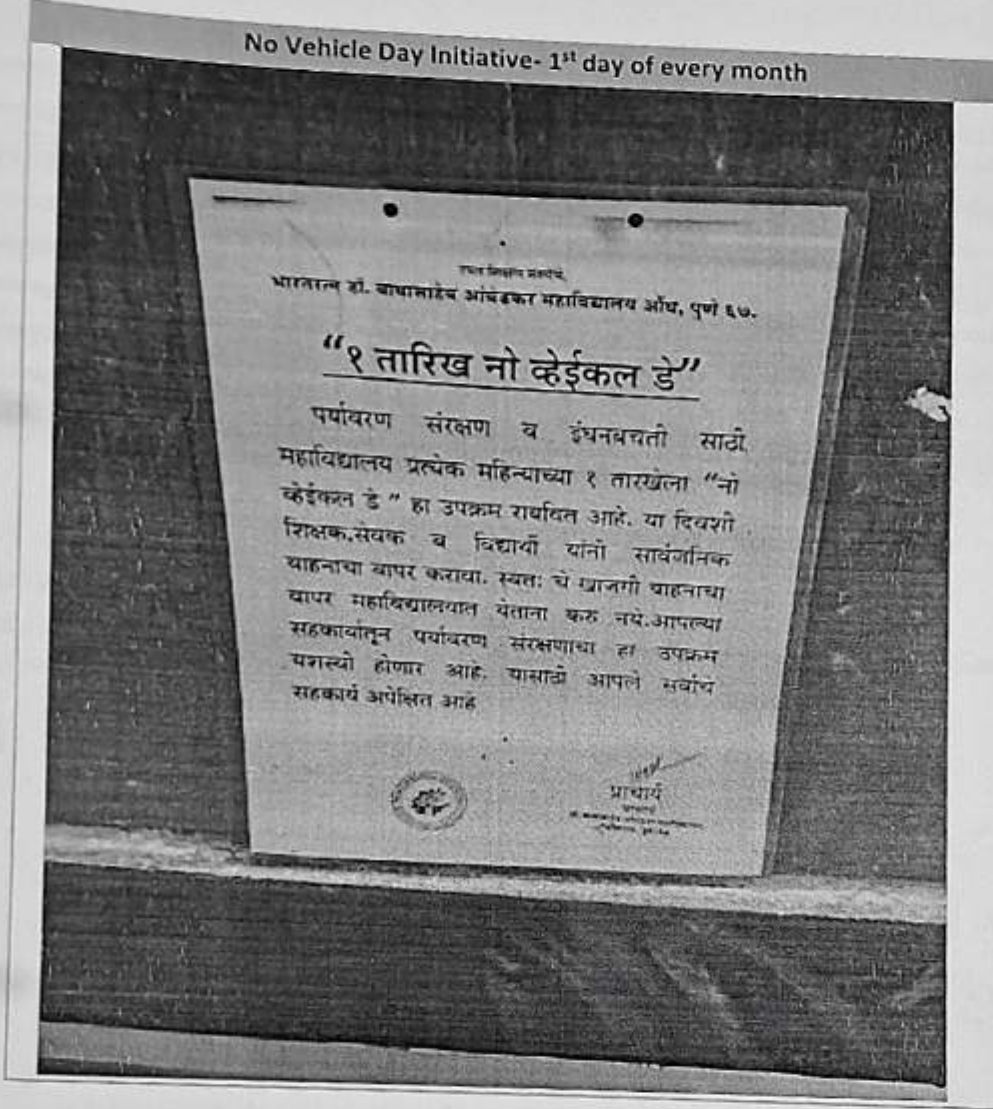 No Vehicle Day Initiative- 1st day of every month
भारतरत्न डॉ. बाबासाहेब आंबेडकर महाविद्यालय औंध, पुणे ६७.
“१ तारिख नो व्हेईकल डे”
पर्यावरण संरक्षण व इंधनबचती साठी,
महाविद्यालय प्रत्येक महिन्याच्या १ तारखेला “नो
व्हेईकल डे ” हा उपक्रम रावबित आहे. या दिवशी
शिक्षक,सेवक व विद्यार्थी यांनी सार्वजनिक
वाहनाचा वापर करावा. स्वतः चे खाजगी वाहनाचा
वापर महाविद्यालयात येताना करु नये.आपल्या
सहकार्यातून पर्यावरण संरक्षणाचा हा उपक्रम
यशस्वी होणार आहे. यासाठी आपले सर्वांचे
सहकार्य अपेक्षित आहे
प्राचार्य